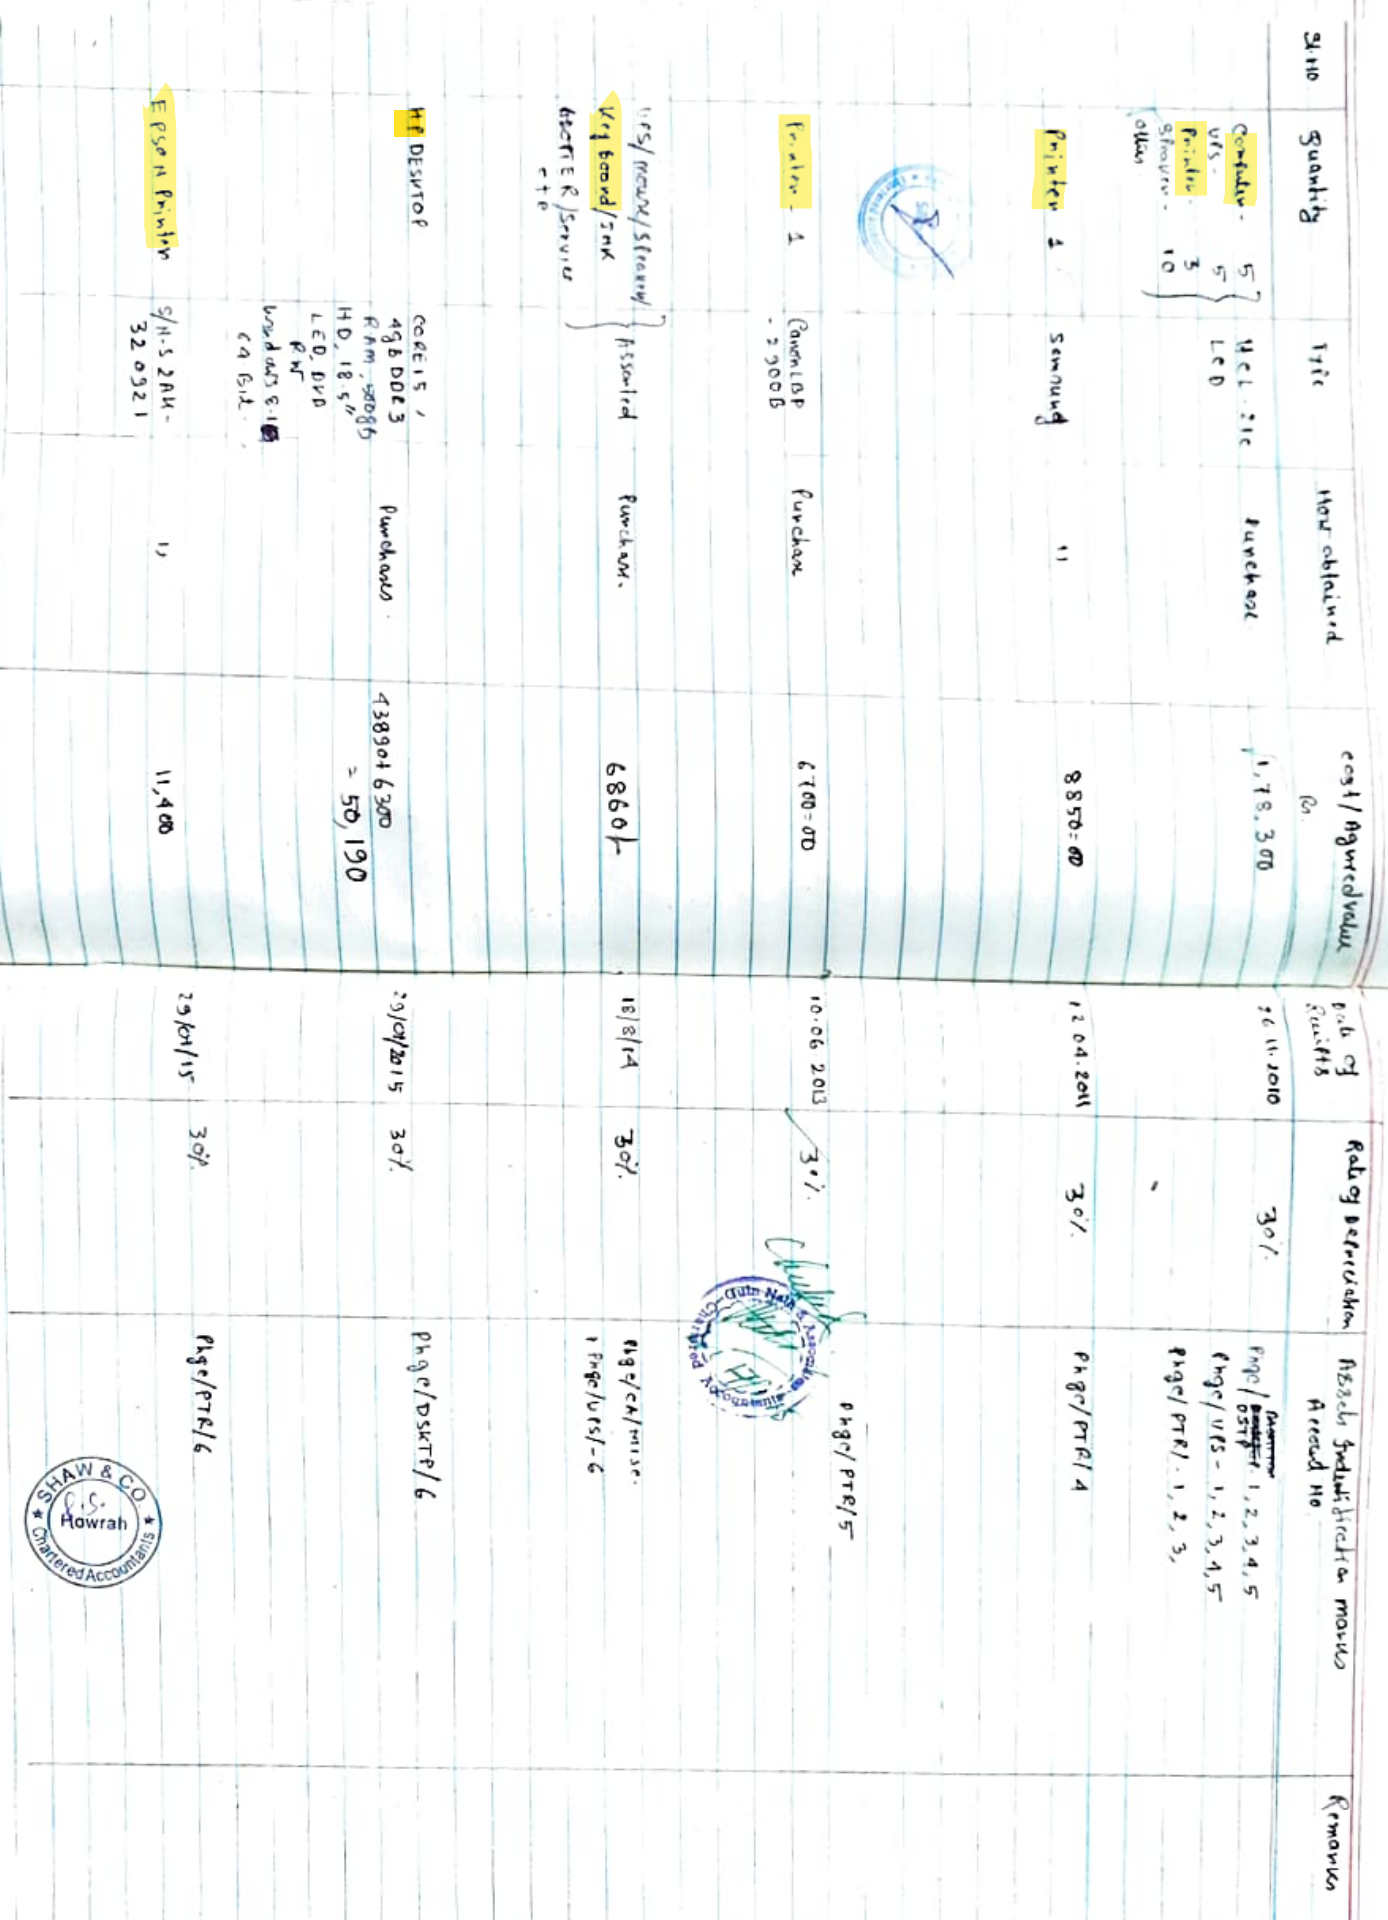 Sl. No
Quantity
Type
How obtained
Cost/Agreed value
Rs.
Date of
Receipts
Rate of Depreciation
Assets Indentification marks
Account No.
Remarks
Computer - 5
UPS - 5
Printer - 3
Speaker - 10
other
HCL
LED
Purchase
1,78,300
11.2010
30%
Phgc/DSTP 1, 2, 3, 4, 5
Phgc/UPS - 1, 2, 3, 4, 5
Phgc/PTR/ - 1, 2, 3,
Printer 1
Samsung
"
8850=00
12.04.2011
30%
Phgc/PTR/4
Printer - 1
Canon LBP
- 2900B
Purchase
6700=00
10.06.2013
30%
Phgc/PTR/5
UPS/mouse/Speaker/
Key board/
/Service
Assorted
Purchase.
6860/-
18/8/14
30%
Phgc/CA/Misc.
Phgc/UPS/-6
HP DESKTOP
CORE i5,
4gb DDR3
RAM, 500gb
HD, 18.5"
LED, DVD
RW
Windows 8.1
64 Bit.
Purchases.
43890+6300
= 50,190
29/04/2015
30%
Phgc/DSKTP/6
EPSON Printer
S/N-S2AK-
320921
"
11,400
29/04/15
30%
Phgc/PTR/6
SHAW & CO.
Howrah
Chartered Accountants